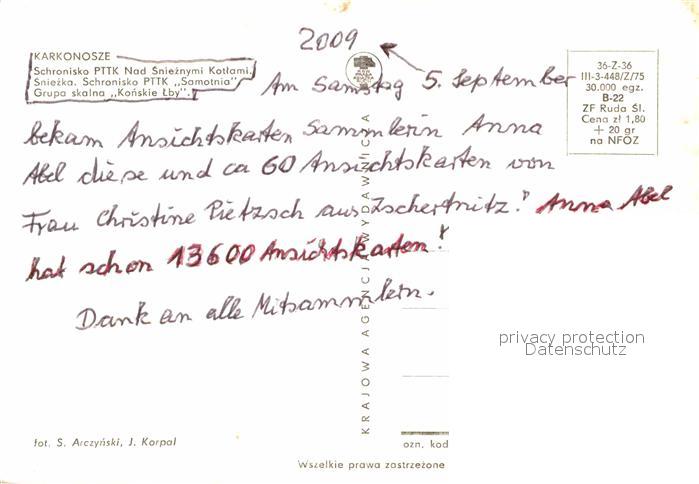 2009
KARKONOSZE
Schronisko PTTK Nad Śnieżnymi Kotłami.
Śnieżka. Schronisko PTTK „Samotnia"
Grupa skalna „Końskie Łby".
36-Z-36
III-3-448/Z/75
30.000 egz.
B-22
ZF Ruda Śl.
Cena zł 1,80
+ 20 gr
na NFOZ
Am Samstag 5. September
bekam Ansichtskarten Sammlerin Anna
Abel diese und ca 60 Ansichtskarten von
Frau Christine Pietzsch aus Zschertnitz! Anna Abel
hat schon 13600 Ansichtskarten!
Dank an alle Mitsammlern.
KRAJOWA AGENCJA WYDAWNICZA
privacy protection
Datenschutz
fot. S. Arczyński, J. Korpal
ozn. kod
Wszelkie prawa zastrzeżone